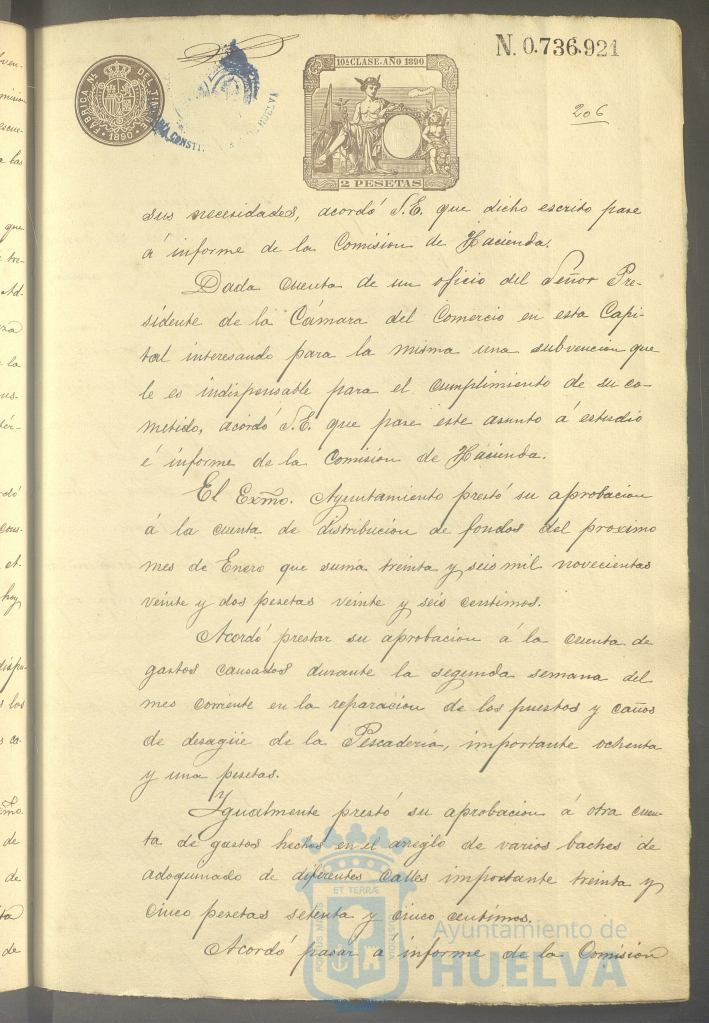 N. 0.736.921
10ª CLASE-AÑO 1890
FÁBRICA Nª DEL TIMBRE
1890
CONSTI
HUELVA
206
2 PESETAS
sus necesidades, acordó S.E. que dicho escrito pase
á informe de la Comision de Hacienda.
Dada cuenta de un oficio del Señor Pre-
sidente de la Cámara del Comercio en esta Capi-
tal interesando para la misma una subvencion que
le es indispensable para el cumplimiento de su co-
metido, acordó S.E. que pase este asunto á estudio
é informe de la Comision de Hacienda.
El Exmo. Ayuntamiento prestó su aprobacion
á la cuenta de distribucion de fondos del proximo
mes de Enero que suma treinta y seis mil novecientas
veinte y dos pesetas veinte y seis centimos.
Acordó prestar su aprobacion á la cuenta de
gastos causados durante la segunda semana del
mes corriente en la reparacion de los puestos y caños
de desagüe de la Pescadería, importante ochenta
y una pesetas.
Igualmente prestó su aprobacion á otra cuen-
ta de gastos hechos en el arreglo de varios baches de
adoquinado de diferentes calles importante treinta y
cinco pesetas setenta y cinco centimos.
Acordó pasar á informe de la Comision
PORTUS MARIS
ET TERRÆ
CUSTODIA
Ayuntamiento de
HUELVA